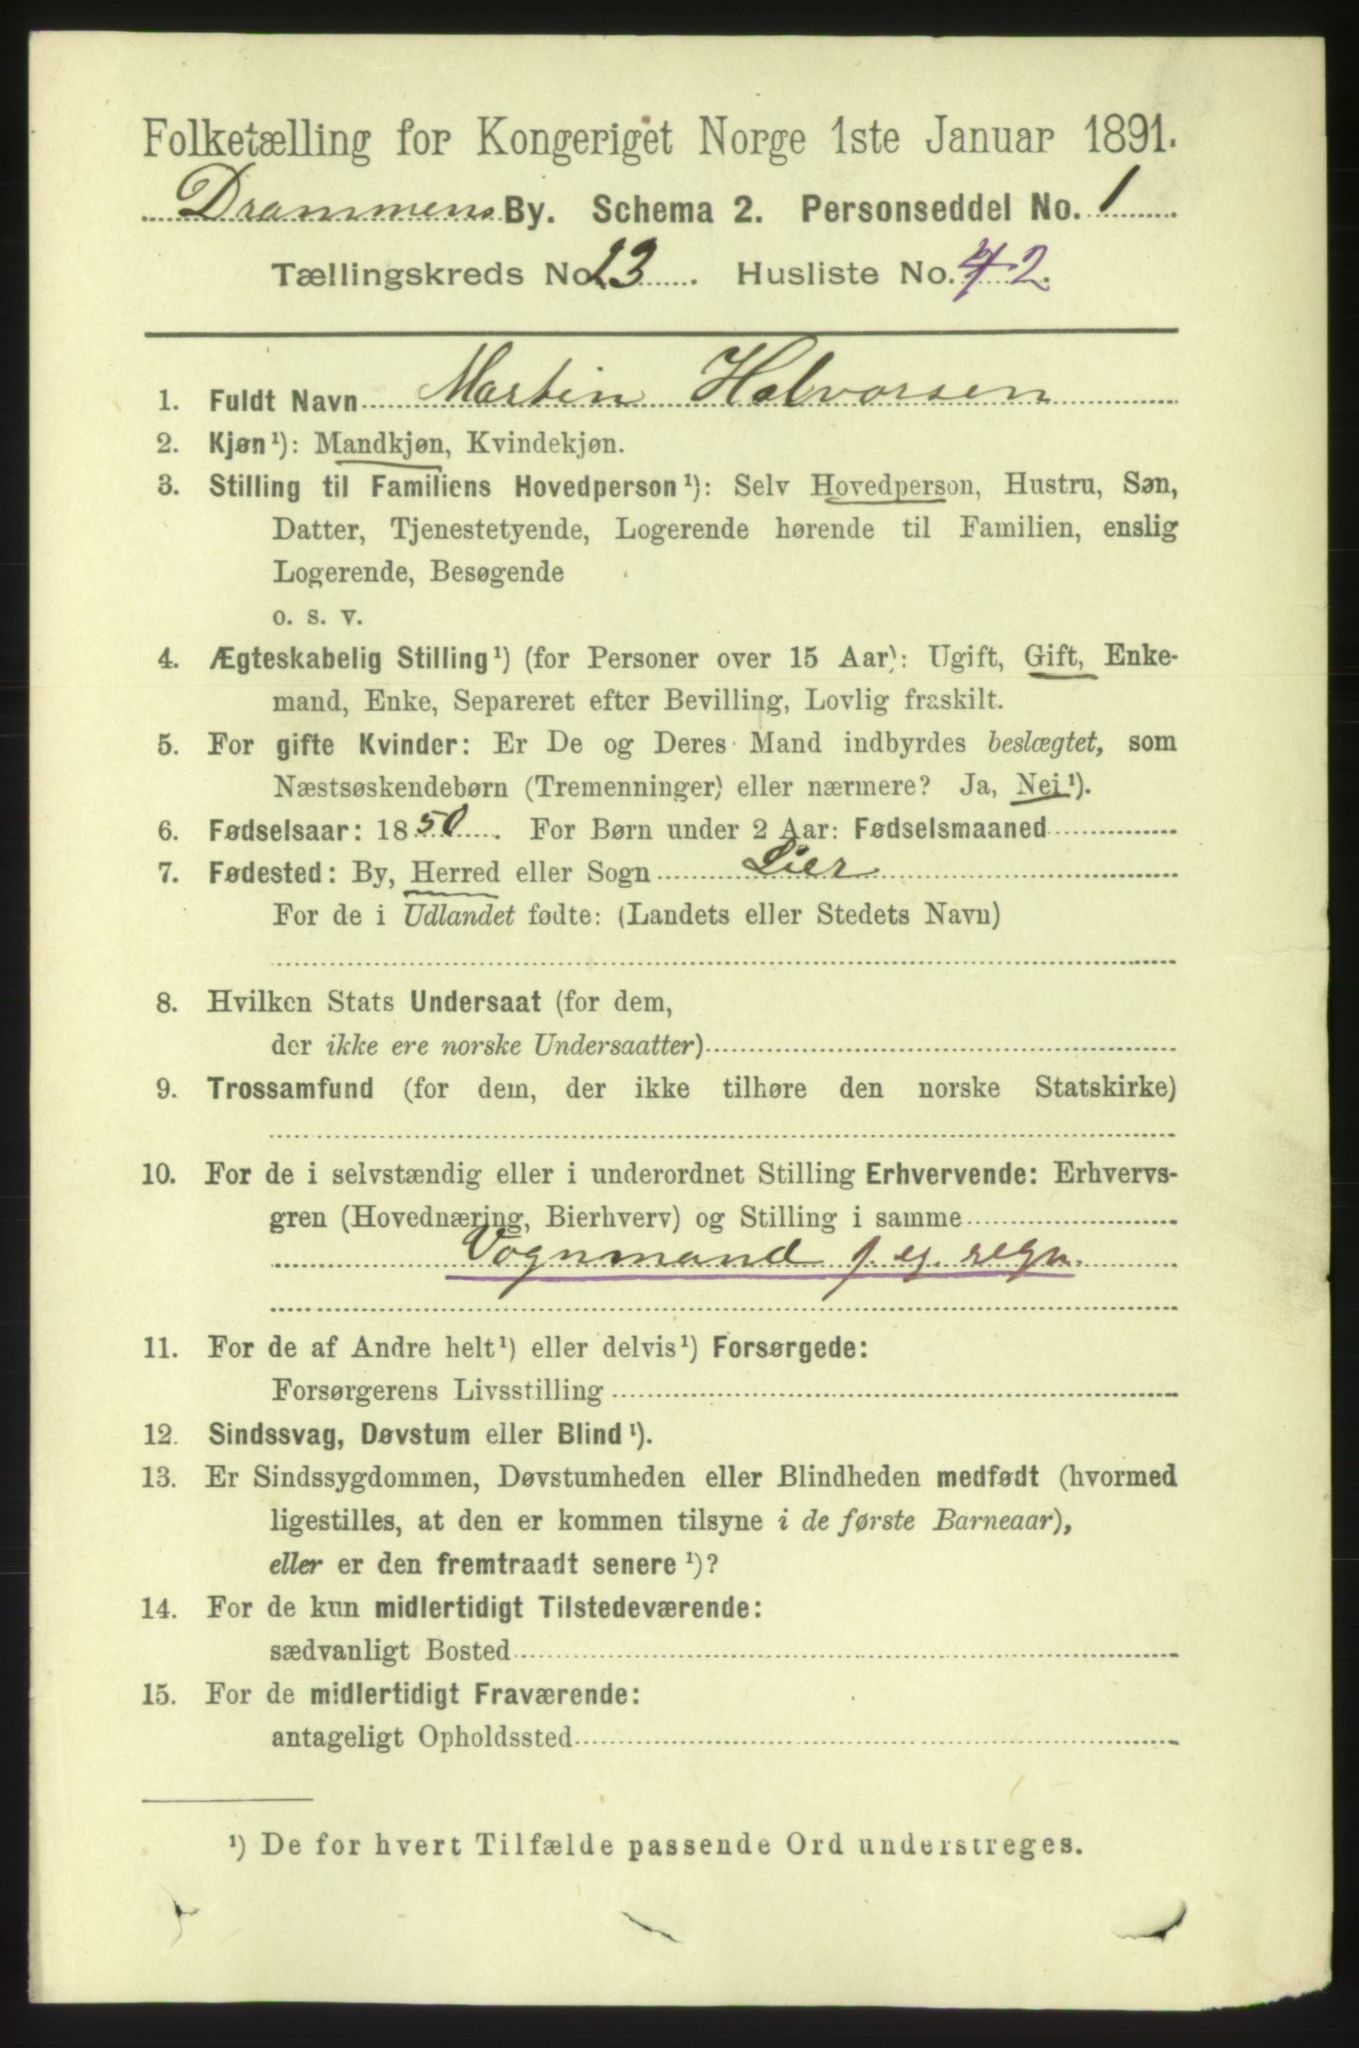 Folketælling for Kongeriget Norge 1ste Januar 1891.
Drammens By. Schema 2. Personseddel No. 1
Tællingskreds No. 23. Husliste No. 42.
1. Fuldt Navn Martin Halvorsen
2. Kjøn¹): Mandkjøn, Kvindekjøn.
3. Stilling til Familiens Hovedperson¹): Selv Hovedperson, Hustru, Søn,
Datter, Tjenestetyende, Logerende hørende til Familien, enslig
Logerende, Besøgende
o. s. v.
4. Ægteskabelig Stilling¹) (for Personer over 15 Aar): Ugift, Gift, Enke-
mand, Enke, Separeret efter Bevilling, Lovlig fraskilt.
5. For gifte Kvinder: Er De og Deres Mand indbyrdes beslægtet, som
Næstsøskendebørn (Tremenninger) eller nærmere? Ja, Nei¹).
6. Fødselsaar: 1850. For Børn under 2 Aar: Fødselsmaaned
7. Fødested: By, Herred eller Sogn Lier
For de i Udlandet fødte: (Landets eller Stedets Navn)
8. Hvilken Stats Undersaat (for dem,
der ikke ere norske Undersaatter)
9. Trossamfund (for dem, der ikke tilhøre den norske Statskirke)
10. For de i selvstændig eller i underordnet Stilling Erhvervende: Erhvervs-
gren (Hovednæring, Bierhverv) og Stilling i samme
Vognmand f. eg. regn.
11. For de af Andre helt¹) eller delvis¹) Forsørgede:
Forsørgerens Livsstilling
12. Sindssvag, Døvstum eller Blind¹).
13. Er Sindssygdommen, Døvstumheden eller Blindheden medfødt (hvormed
ligestilles, at den er kommen tilsyne i de første Barneaar),
eller er den fremtraadt senere¹)?
14. For de kun midlertidigt Tilstedeværende:
sædvanligt Bosted
15. For de midlertidigt Fraværende:
antageligt Opholdssted
¹) De for hvert Tilfælde passende Ord understreges.